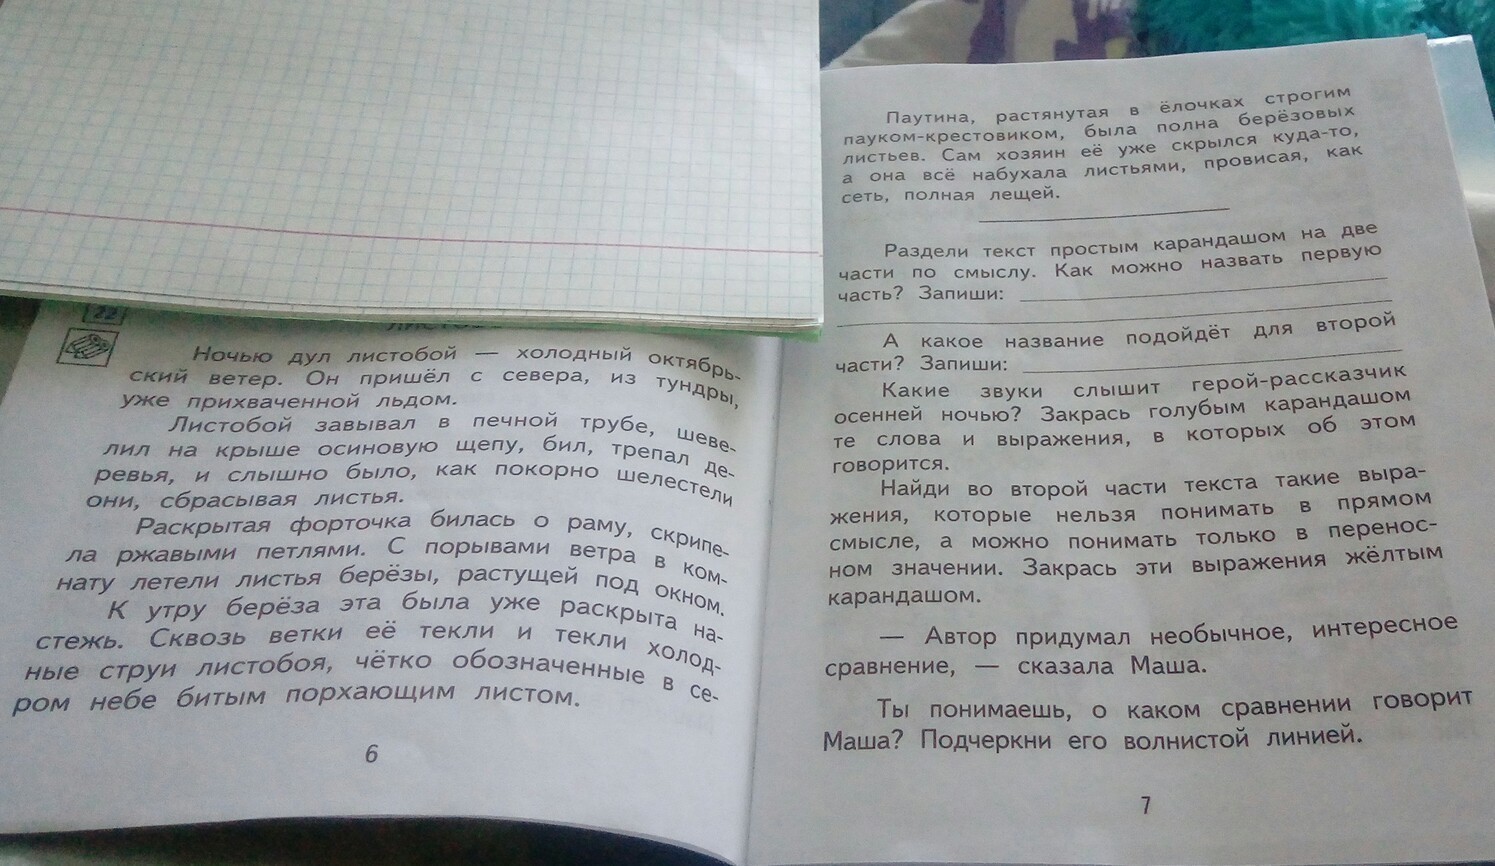 22
Ночью дул листобой — холодный октябрь-
ский ветер. Он пришёл с севера, из тундры,
уже прихваченной льдом.
Листобой завывал в печной трубе, шеве-
лил на крыше осиновую щепу, бил, трепал де-
ревья, и слышно было, как покорно шелестели
они, сбрасывая листья.
Раскрытая форточка билась о раму, скрипе-
ла ржавыми петлями. С порывами ветра в ком-
нату летели листья берёзы, растущей под окном.
К утру берёза эта была уже раскрыта на-
стежь. Сквозь ветки её текли и текли холод-
ные струи листобоя, чётко обозначенные в се-
ром небе битым порхающим листом.
6
Паутина, растянутая в ёлочках строгим
пауком-крестовиком, была полна берёзовых
листьев. Сам хозяин её уже скрылся куда-то,
а она всё набухала листьями, провисая, как
сеть, полная лещей.
Раздели текст простым карандашом на две
части по смыслу. Как можно назвать первую
часть? Запиши:
А какое название подойдёт для второй
части? Запиши:
Какие звуки слышит герой-рассказчик
осенней ночью? Закрась голубым карандашом
те слова и выражения, в которых об этом
говорится.
Найди во второй части текста такие выра-
жения, которые нельзя понимать в прямом
смысле, а можно понимать только в перенос-
ном значении. Закрась эти выражения жёлтым
карандашом.
— Автор придумал необычное, интересное
сравнение, — сказала Маша.
Ты понимаешь, о каком сравнении говорит
Маша? Подчеркни его волнистой линией.
7